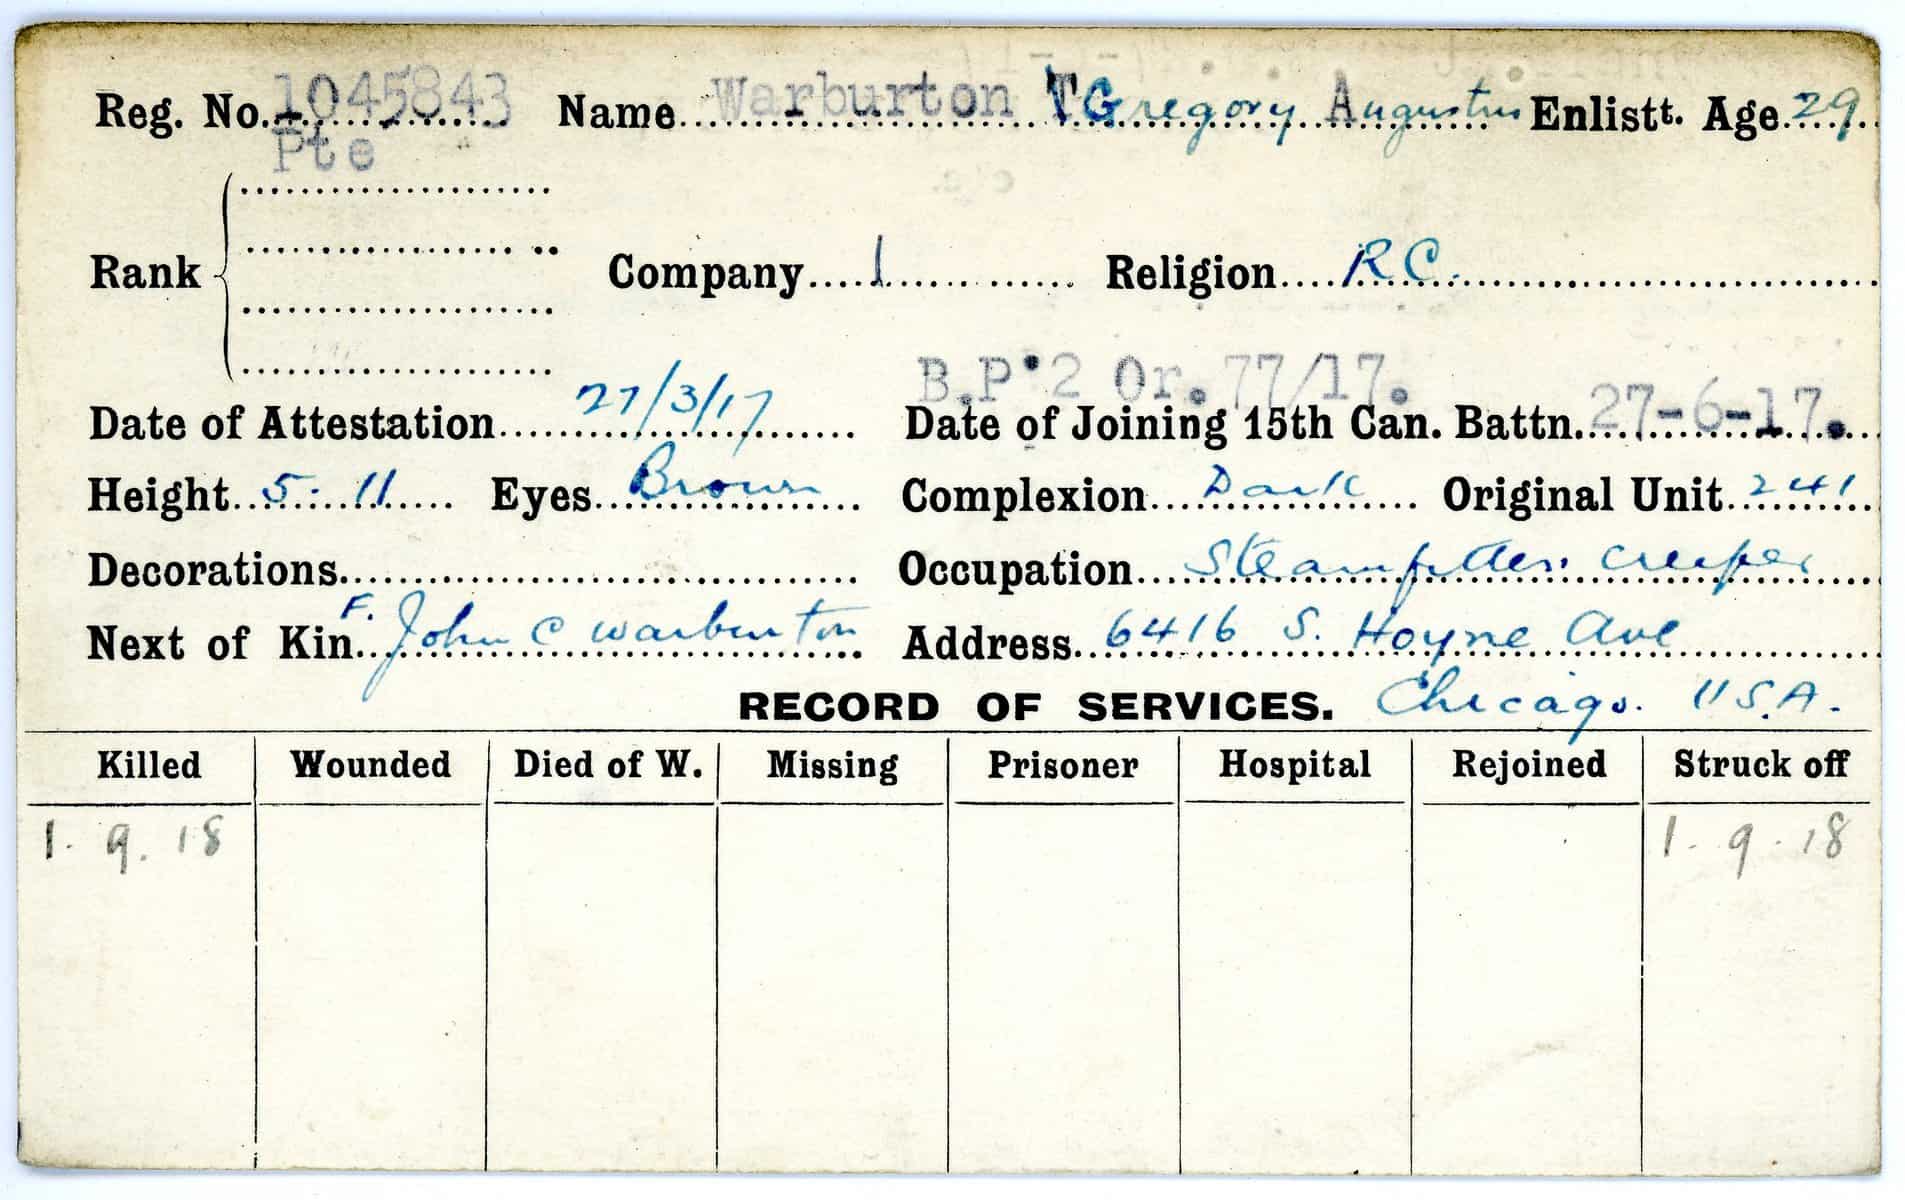 Reg. No. 1045843 Name Warburton T Gregory Augustus Enlistt. Age 29
Pte
Rank Company 1 Religion R C.
B.P. 2 Or. 77/17.
Date of Attestation 27/3/17 Date of Joining 15th Can. Battn. 27-6-17.
Height 5. 11 Eyes Brown Complexion Dark Original Unit 241
Decorations Occupation Steamfitter
Next of Kin F. John C Warburton Address 6416 S. Hoyne Ave
RECORD OF SERVICES. Chicago. U.S.A.
Killed Wounded Died of W. Missing Prisoner Hospital Rejoined Struck off
1. 9. 18 1. 9. 18